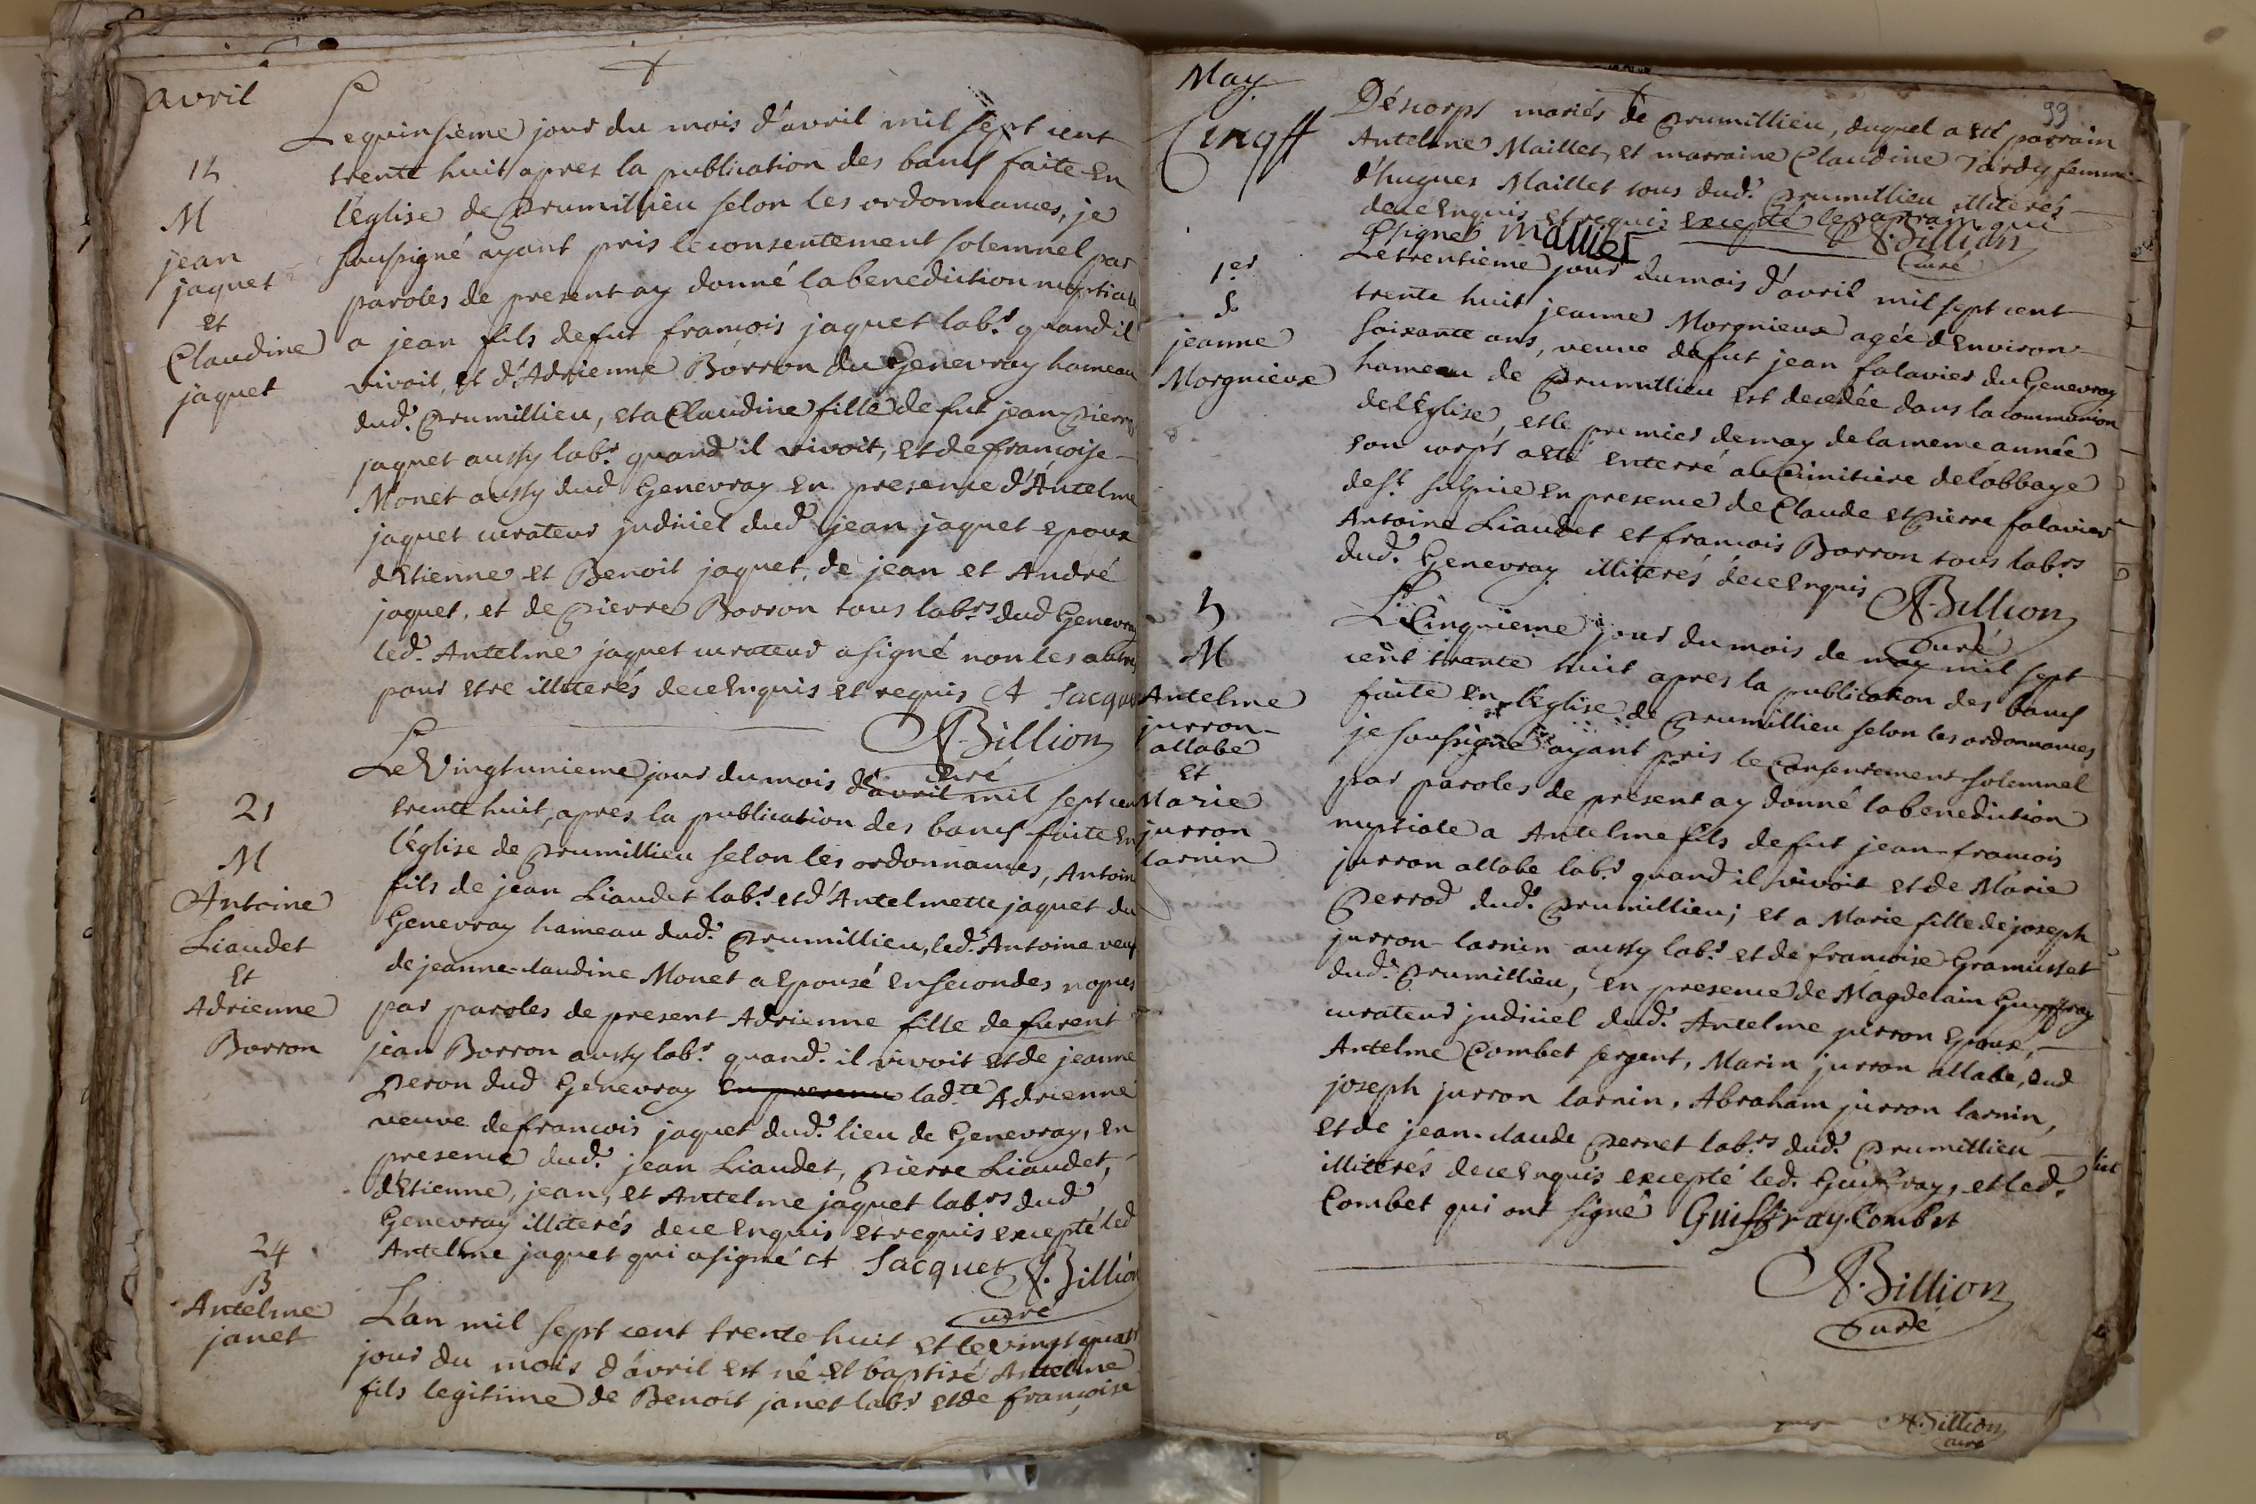 avril
Le quinsieme jour du mois d'avril mil sept cent
trente huit apres la publication des bancs faite en
l'église de Prumillieu selon les ordonnances, je
soussigné ayant pris le consentement solemnel par
paroles de present ay donné la benediction nuptiale
a jean fils de fut francois jaquet lab.r quand il
vivoit, et d'Adrienne Borron du Genevray hameau
dud.t Prumillieu, et a Claudine fille de fut jean-Pierre
jaquet aussy lab.r quand il vivoit, et de françoise
Monet aussy dud Genevray en presence d'Antelme
jaquet curateur judiciel dud.t jean jaquet epoux
d'Etienne et Benoit jaquet, de jean et André
jaquet, et de Pierre Borron tous lab.rs dud Genevray
led.t Antelme jaquet curateur a signé non les autres
pour etre illiterés de ce enquis et requis A Jacquet
ABillion
curé
15
M
jean
jaquet
et
Claudine
jaquet
Le vingtunieme jour du mois d'avril mil sept cent
trente huit, apres la publication des bancs faite en
l'église de Prumillieu selon les ordonnances, Antoine
fils de jean Liaudet lab.r et d'Antelmette jaquet du
Genevray hameau dud.t Prumillieu, led.t Antoine veuf
de jeanne-claudine Monet a epousé en secondes nopces
par paroles de present Adrienne fille de furent
jean Borron aussy lab.r quand.t il vivoit et de jeanne
Peron dud Genevray en presence lad.te Adrienne
veuve de francois jaquet dud.t lieu de Genevray, en
presence dud.t jean Liaudet, Pierre Liaudet,
d'Etienne, jean, et Antelme jaquet lab.rs dud
Genevray illiterés de ce enquis et requis excepté led
Antelme jaquet qui a signé A Jacquet A.Billion
curé
21
M
Antoine
Liaudet
et
Adrienne
Borron
24
B
Antelme
janet
L'an mil sept cent trente huit et le vingt quatr
jour du mois d'avril est né et baptisé Antelme
fils legitime de Benoit janet lab.r et de françoise
May
99
Cinq
Déscorps mariés de Prumillieu, duquel a eté parrain
Antelme Maillet, et marraine Claudine Tardy femme
d'hugues Maillet tous dud.t Prumillieu illiterés
de ce enquis et requis excepté le parrain qui
a signé Mallier A.Billion
curé
1er
S
jeanne
Morgnieux
Le trentieme jour du mois d'avril mil sept cent
trente huit jeanne Morgnieux agée d'environ
soixante ans, veuve de fut jean falavier du Genevray
hameau de Prumillieu est decedée dans la communion
de l'Eglise, et le premier de may de la meme année
son corps a eté enterré au Cimitiere de l'abbaye
de S.t sulpice en presence de Claude et Pierre falavier
Antoine Liaudet et francois Borron tous lab.rs
dud.t Genevray illiterés de ce enquis ABillion
curé
5
M
Antelme
jurron
allabe
et
Marie
jurron
larnin
Le Cinquieme jour du mois de may mil sept
cent trente huit apres la publication des bancs
faite en l'église de Prumillieu selon les ordonnances
je soussigné ayant pris le Consentement solemnel
par paroles de present ay donné la benediction
nuptiale a Antelme fils de fut jean-francois
jurron allabe lab.r quand il vivoit et de Marie
Perrod dud.t Prumillieu; et a Marie fille de joseph
jurron-larnin aussy lab.r et de francoise Gramusset
dud.t Prumillieu, en presence de Magdelain Guyffray
curateur judiciel dud.t Antelme jurron Epoux,
Antelme Combet sergent, Marin jurron allabe, dud
joseph jurron larnin, Abraham jurron larnin,
et de jean-claude Pernet lab.rs dud.t Prumillieu
illiterés de ce enquis excepté led. Guyffray, et led.
Combet qui ont signé Guiffray Combet
A.Billion
Curé
A.Billion
curé